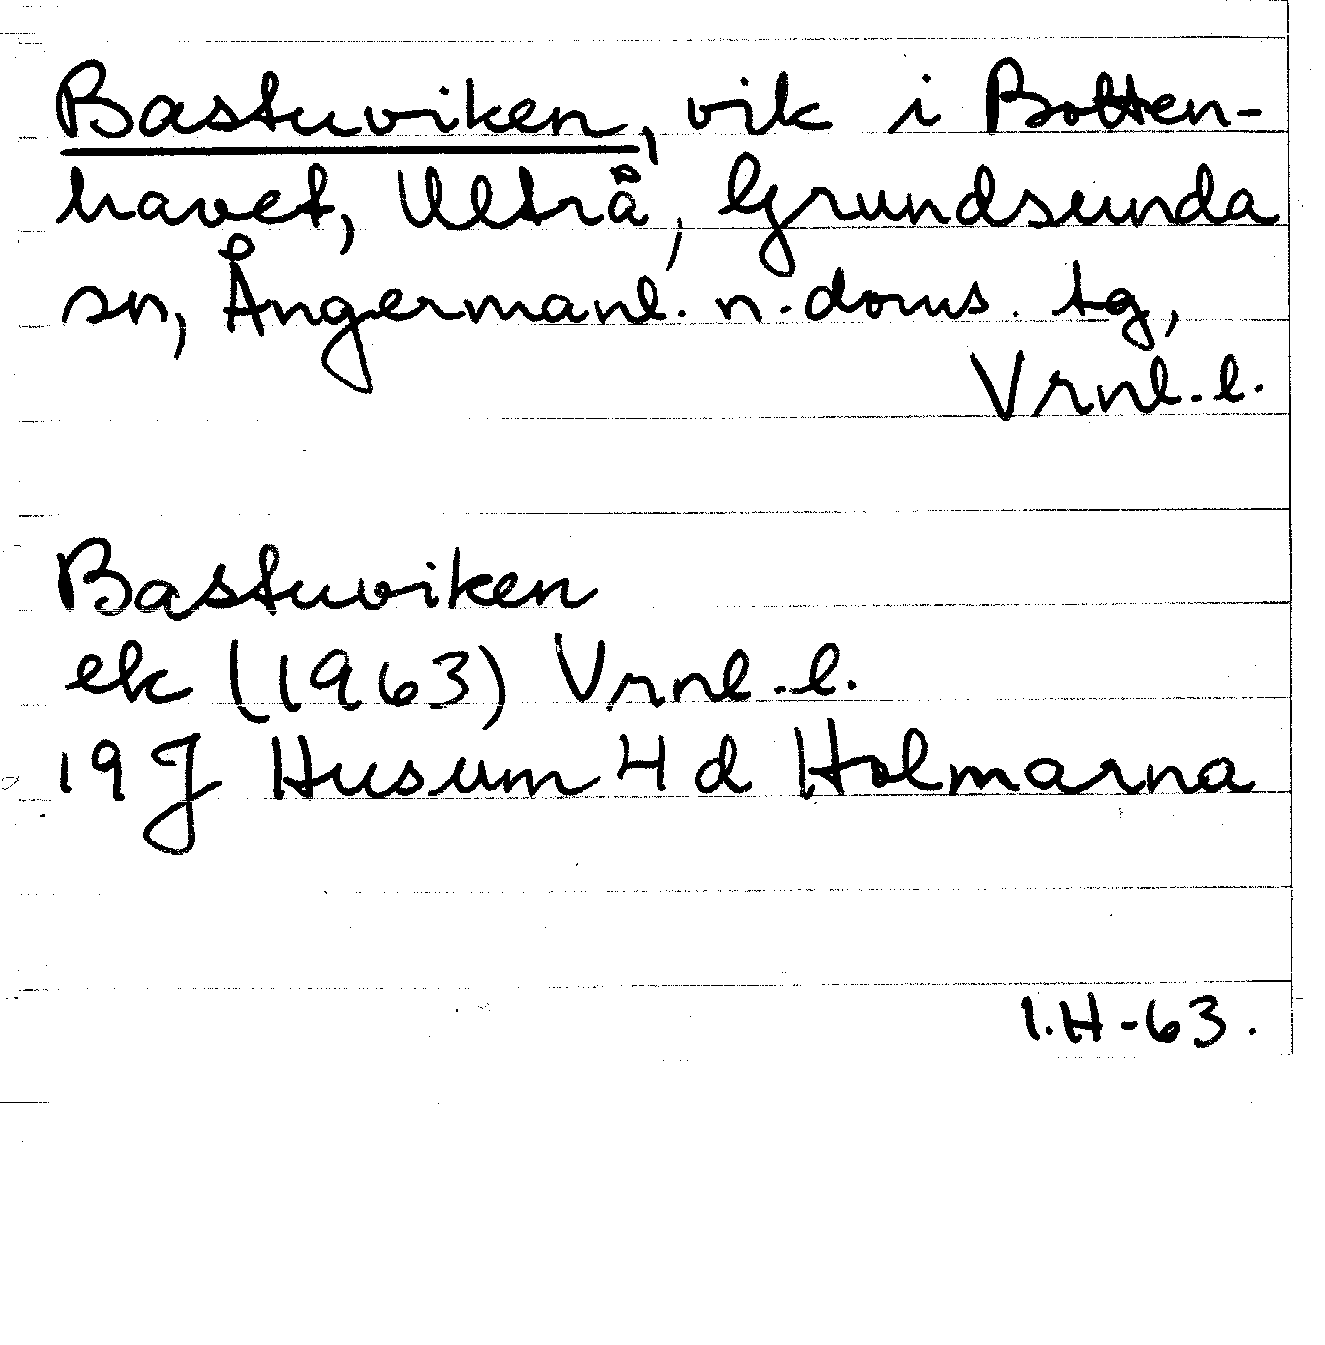 Bastuviken, vik i Botten-
havet, Ultrå, Grundsunda
sn, Ångermanl. n. doms. tg,
Vrnl. l.
Bastuviken
ek (1963) Vrnl. l.
19 J Husum 4 d Holmarna
I.H-63.